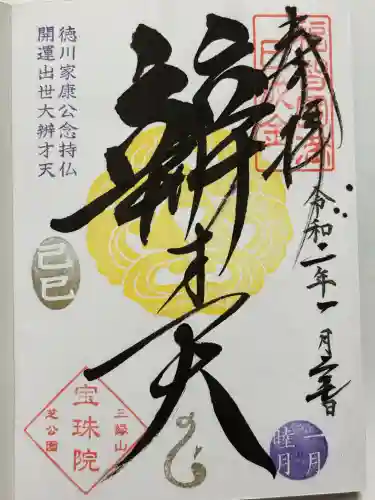 奉拝
令和二年一月
辨才天
徳川家康公念持仏
開運出世大辨才天
己巳
三縁山
宝珠院
芝公園
一月
睦月